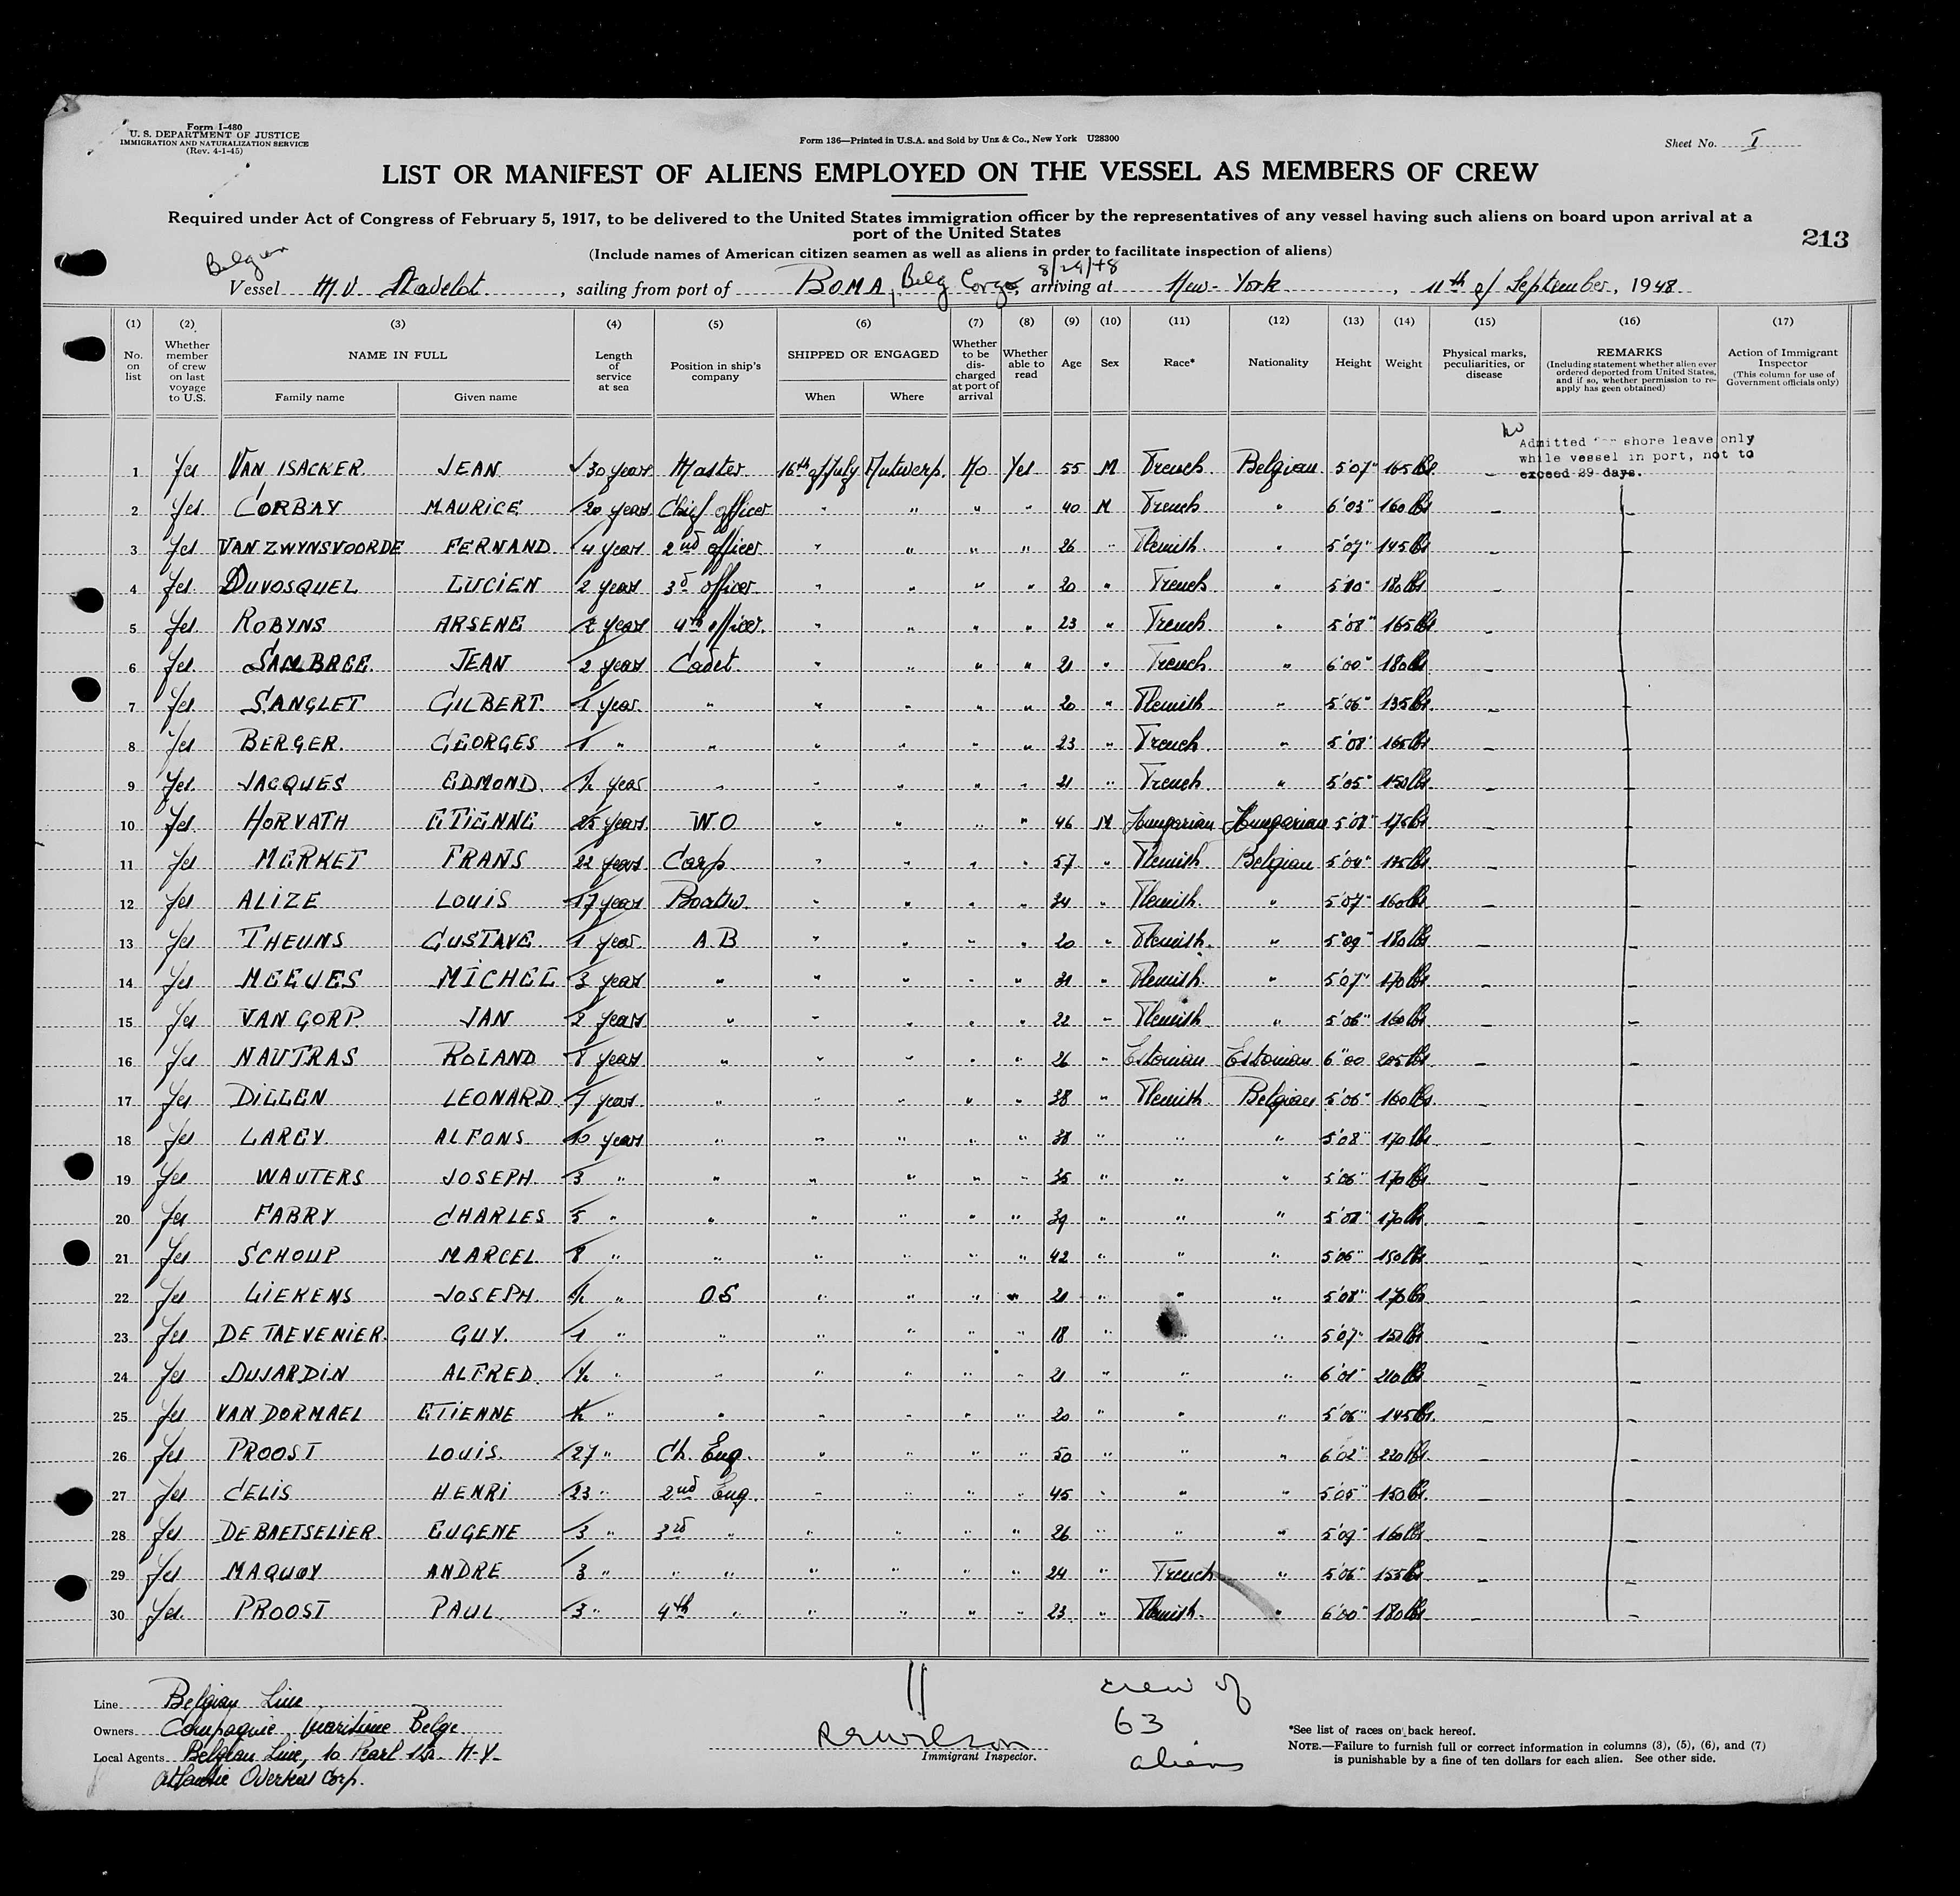 Form I-480
U. S. DEPARTMENT OF JUSTICE
IMMIGRATION AND NATURALIZATION SERVICE
(Rev. 4-1-45)
Form 136—Printed in U.S.A. and Sold by Unz & Co., New York U28300
Sheet No. I
LIST OR MANIFEST OF ALIENS EMPLOYED ON THE VESSEL AS MEMBERS OF CREW
Required under Act of Congress of February 5, 1917, to be delivered to the United States immigration officer by the representatives of any vessel having such aliens on board upon arrival at a
port of the United States
213
(Include names of American citizen seamen as well as aliens in order to facilitate inspection of aliens)
Belgian 8/29/48
Vessel M.V. Stavelot, sailing from port of BOMA, Belg Congo, arriving at New-York, 11th of September, 1948
(1) (2) (3) (4) (5) (6) (7) (8) (9) (10) (11) (12) (13) (14) (15) (16) (17)
No. on list Whether member of crew on last voyage to U.S. NAME IN FULL Family name Given name Length of service at sea Position in ship's company SHIPPED OR ENGAGED When Where Whether to be discharged at port of arrival Whether able to read Age Sex Race* Nationality Height Weight Physical marks, peculiarities, or disease REMARKS (Including statement whether alien ever ordered deported from United States, and if so, whether permission to re-apply has geen obtained) Action of Immigrant Inspector (This column for use of Government officials only)
Admitted for shore leave only
while vessel in port, not to
exceed 29 days.
1 Yes VAN ISACKER JEAN 30 years Master 16th of July Antwerp. No Yes 55 M French Belgian 5'07" 165 lbs. –
2 Yes CORBAY MAURICE 20 years Chief officer " " " " 40 M French " 6'03" 160 lbs – –
3 Yes VAN ZWYNSVOORDE FERNAND 4 years 2nd officer " " " " 26 " Flemish " 5'07" 145 lbs – –
4 Yes DUVOSQUEL LUCIEN 2 years 3d officer " " " " 20 " French " 5'10" 180 lbs – –
5 Yes ROBYNS ARSENE 2 years 4th officer. " " " " 23 " French " 5'08" 165 lbs – –
6 Yes SAMBREE JEAN 2 years Cadet " " " " 21 " French " 6'00" 180 lbs – –
7 Yes SANGLET GILBERT 1 year " " " " " 20 " Flemish " 5'06" 135 lbs – –
8 Yes BERGER GEORGES 1 " " " " " " 23 " French " 5'08" 165 lbs – –
9 Yes JACQUES EDMOND ½ year " " " " " 21 " French " 5'05" 150 lbs – –
10 Yes HORVATH ETIENNE 25 years W.O " " " " 46 M Hungarian Hungarian 5'08" 175 lbs – –
11 Yes MERKET FRANS 22 years Carp. " " " " 57 " Flemish Belgian 5'04" lbs – –
12 Yes ALIZE LOUIS 17 years Boatsw. " " " " 34 " Flemish " 5'07" 160 lbs – –
13 Yes THEUNS GUSTAVE 1 year A B " " " " 20 " Flemish " 5'09" 180 lbs – –
14 Yes MEEUES MICHEL 3 years " " " " " 31 " Flemish " 5'07" 170 lbs – –
15 Yes VAN GORP JAN 2 years " " " " " 22 " Flemish " 5'06" 160 lbs – –
16 Yes NAUTRAS ROLAND 8 years " " " " " 26 " Estonian Estonian 6"00 205 lbs – –
17 Yes DILLEN LEONARD 7 years " " " " " 38 " Flemish Belgian 5'06" 160 lbs. – –
18 Yes LAREY ALFONS 10 years " " " " " 38 " " " 5'08" 170 lbs – –
19 Yes WAUTERS JOSEPH 3 " " " " " " 35 " " " 5'06" 170 lbs – –
20 Yes FABRY CHARLES 5 " " " " " " 39 " " " 5'08" 170 lbs. – –
21 Yes SCHOUP MARCEL 8 " " " " " " 42 " " " 5'06" 150 lbs – –
22 Yes LIEKENS JOSEPH ½ " OS " " " " 21 " " " 5'08" 170 lbs. – –
23 Yes DE TAEVENIER GUY. 1 " " " " " " 18 " " " 5'07" 150 lbs – –
24 Yes DUJARDIN ALFRED ½ " " " " " " 21 " " " 6'01" 210 lbs – –
25 Yes VAN DORMAEL ETIENNE ½ " " " " " " 20 " " " 5'06" 145 lbs. – –
26 Yes PROOST LOUIS. 27 " Ch. Eng. " " " " 50 " " " 6'02" 220 lbs. – –
27 Yes CELIS HENRI 23 " 2nd Eng. " " " " 45 " " " 5'05" 150 lbs. – –
28 Yes DE BAETSELIER EUGENE 3 " 3rd " " " " " 26 " " " 5'09" 160 lbs – –
29 Yes MAQUOY ANDRE 3 " " " " " " " 24 " French " 5'06" 155 lbs – –
30 Yes. PROOST PAUL 3 " 4th " " " " " 23 " Flemish " 6'00" 180 lbs – –
Line Belgian Line
Owners Compagnie Maritime Belge
Local Agents Belgian Line, 10 Pearl Str. N-Y-
Atlantic Overseas Corp.
Immigrant Inspector.
crew of
63
aliens
*See list of races on back hereof.
NOTE.—Failure to furnish full or correct information in columns (3), (5), (6), and (7)
is punishable by a fine of ten dollars for each alien. See other side.